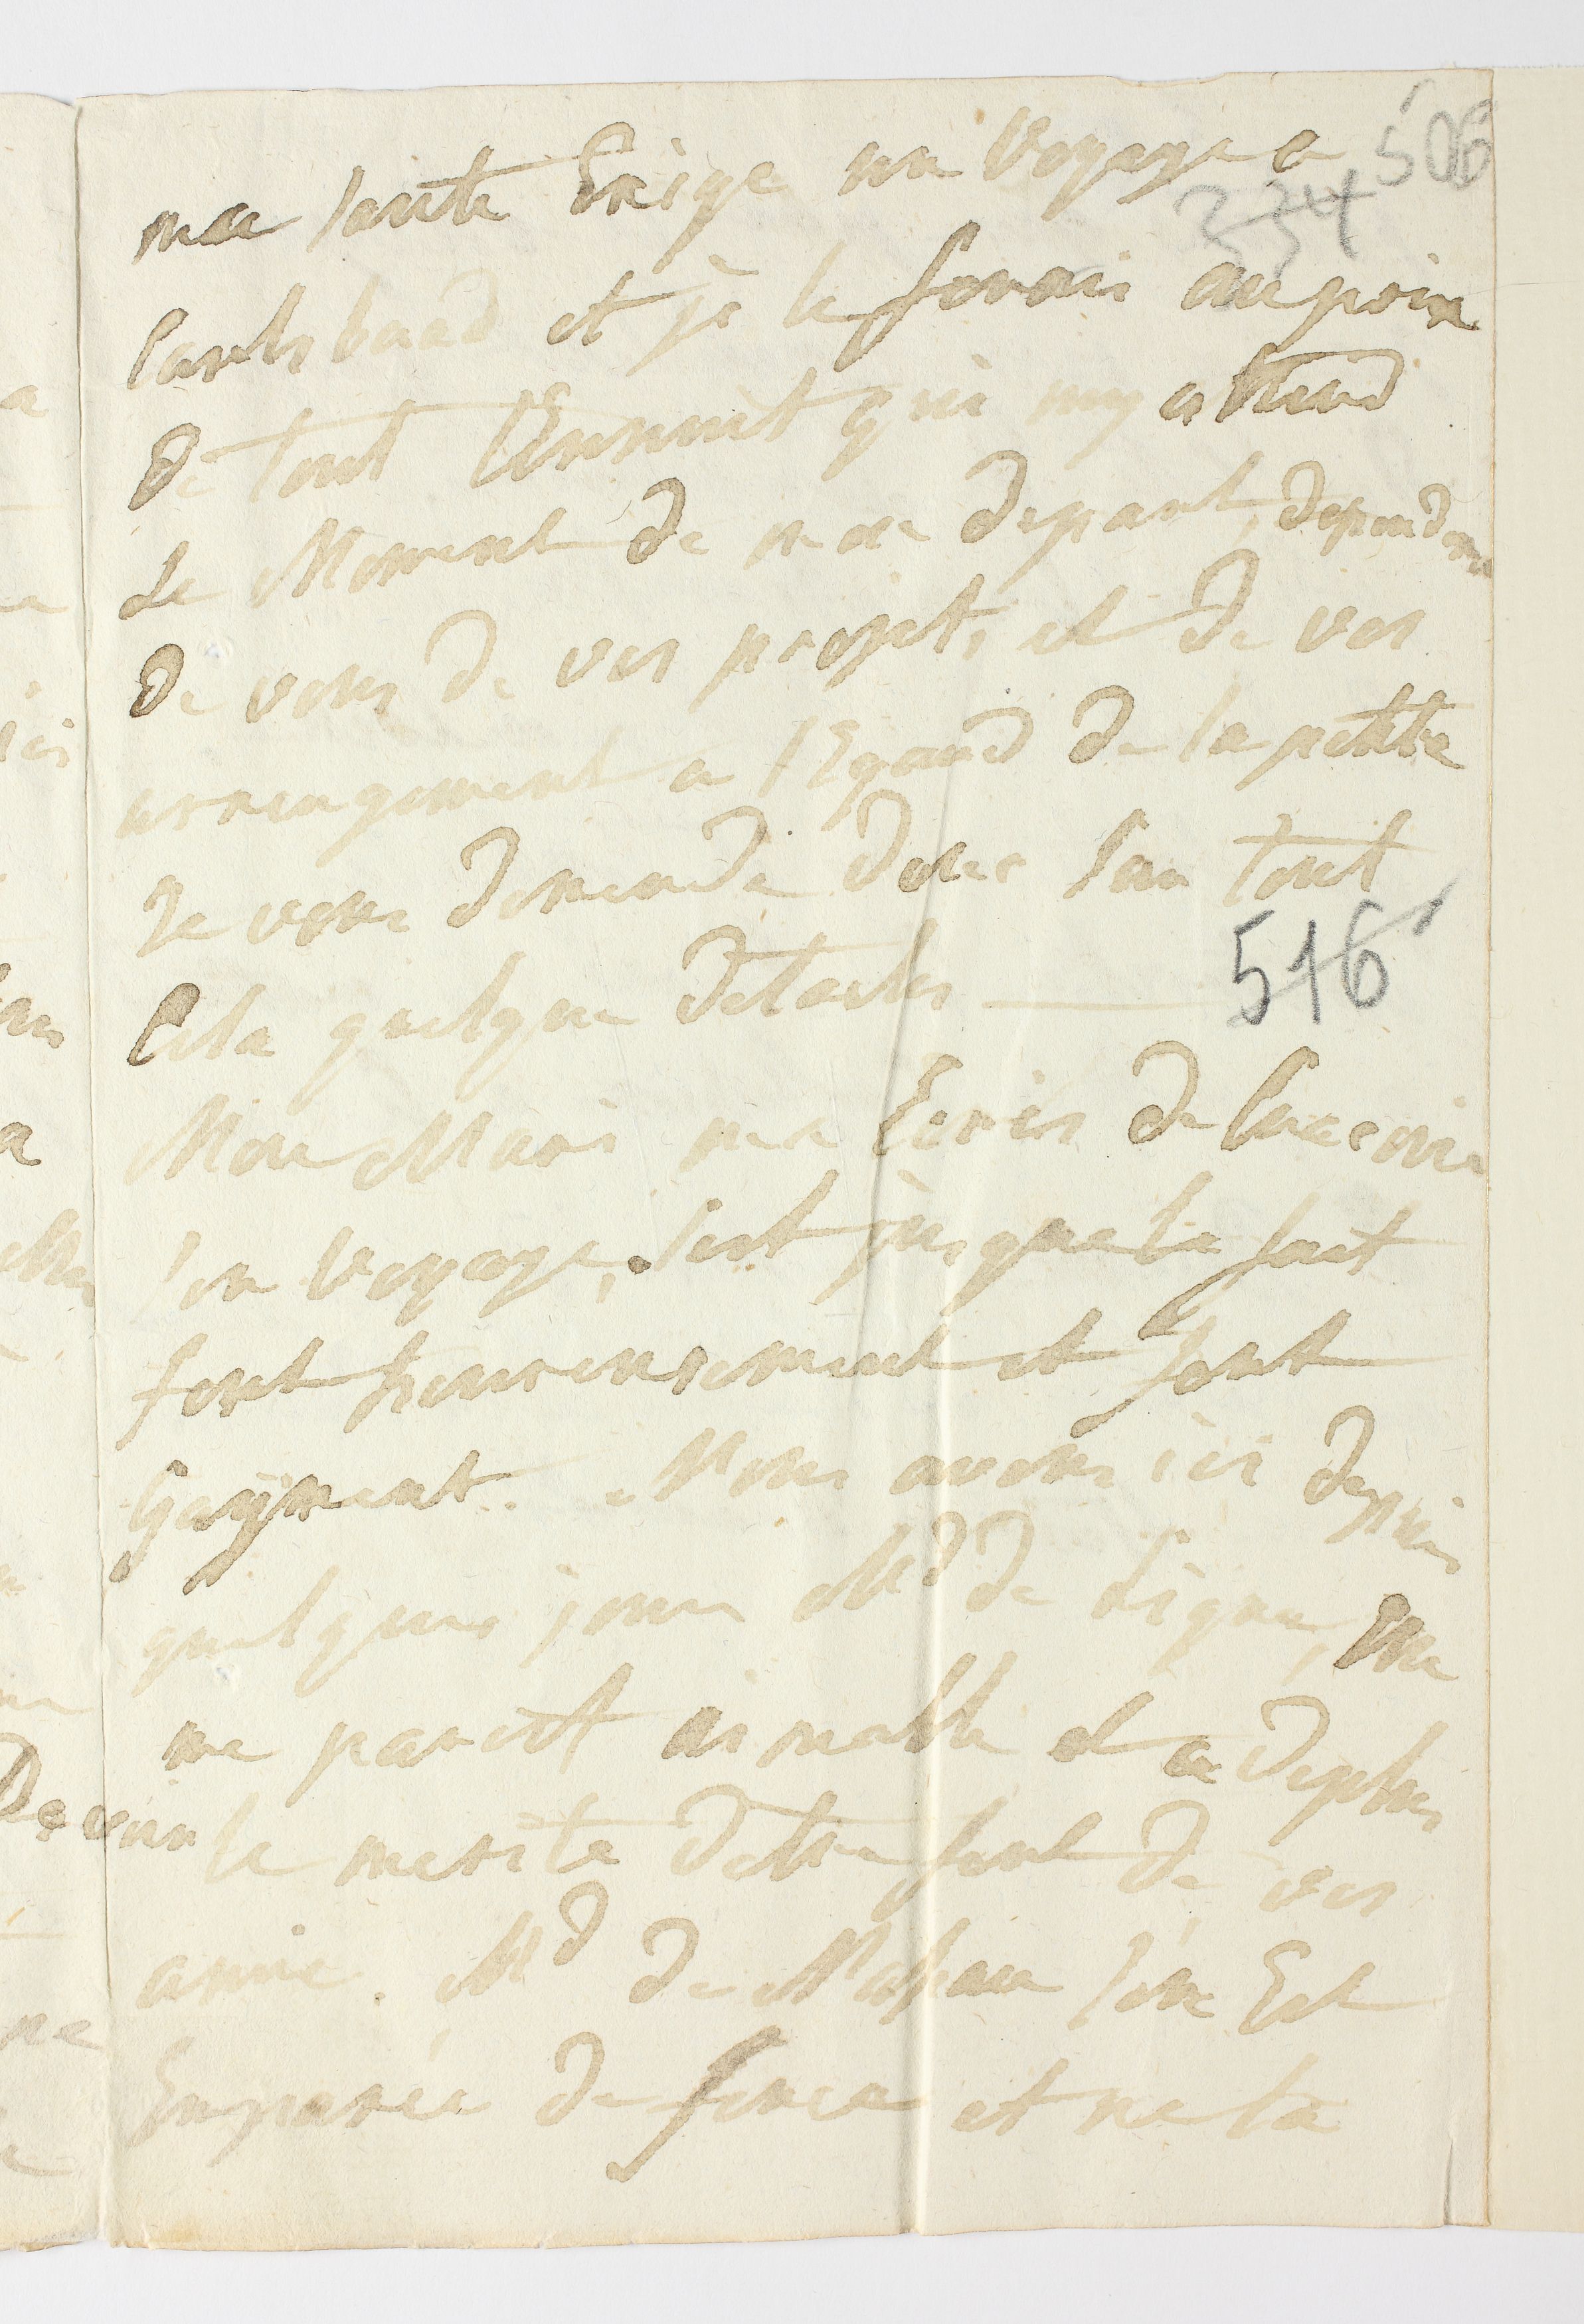 506
334
ma sante Exige un Voyage a
Carlsbaad et je le ferois au prix
De tout l'Ennuit qui my attend
Le Moment de mon depart, dependra
De vous de vos projets, et de vos
arrengement a l'Egard de la petite
Je vous demende donc sur tout
Cela quelque detailes
516
Mon Mari ma Ecris de Cracovie
son Voyage, sest jusque la fait
fort heureusement et fort
Gayment. Nous avons ici depuis
quelques jours Md de Ligne, Elle
me paroit aimable et a deplus
le merite detre fort de vos
amie. Md de sen Est
Emparée de force et ne la